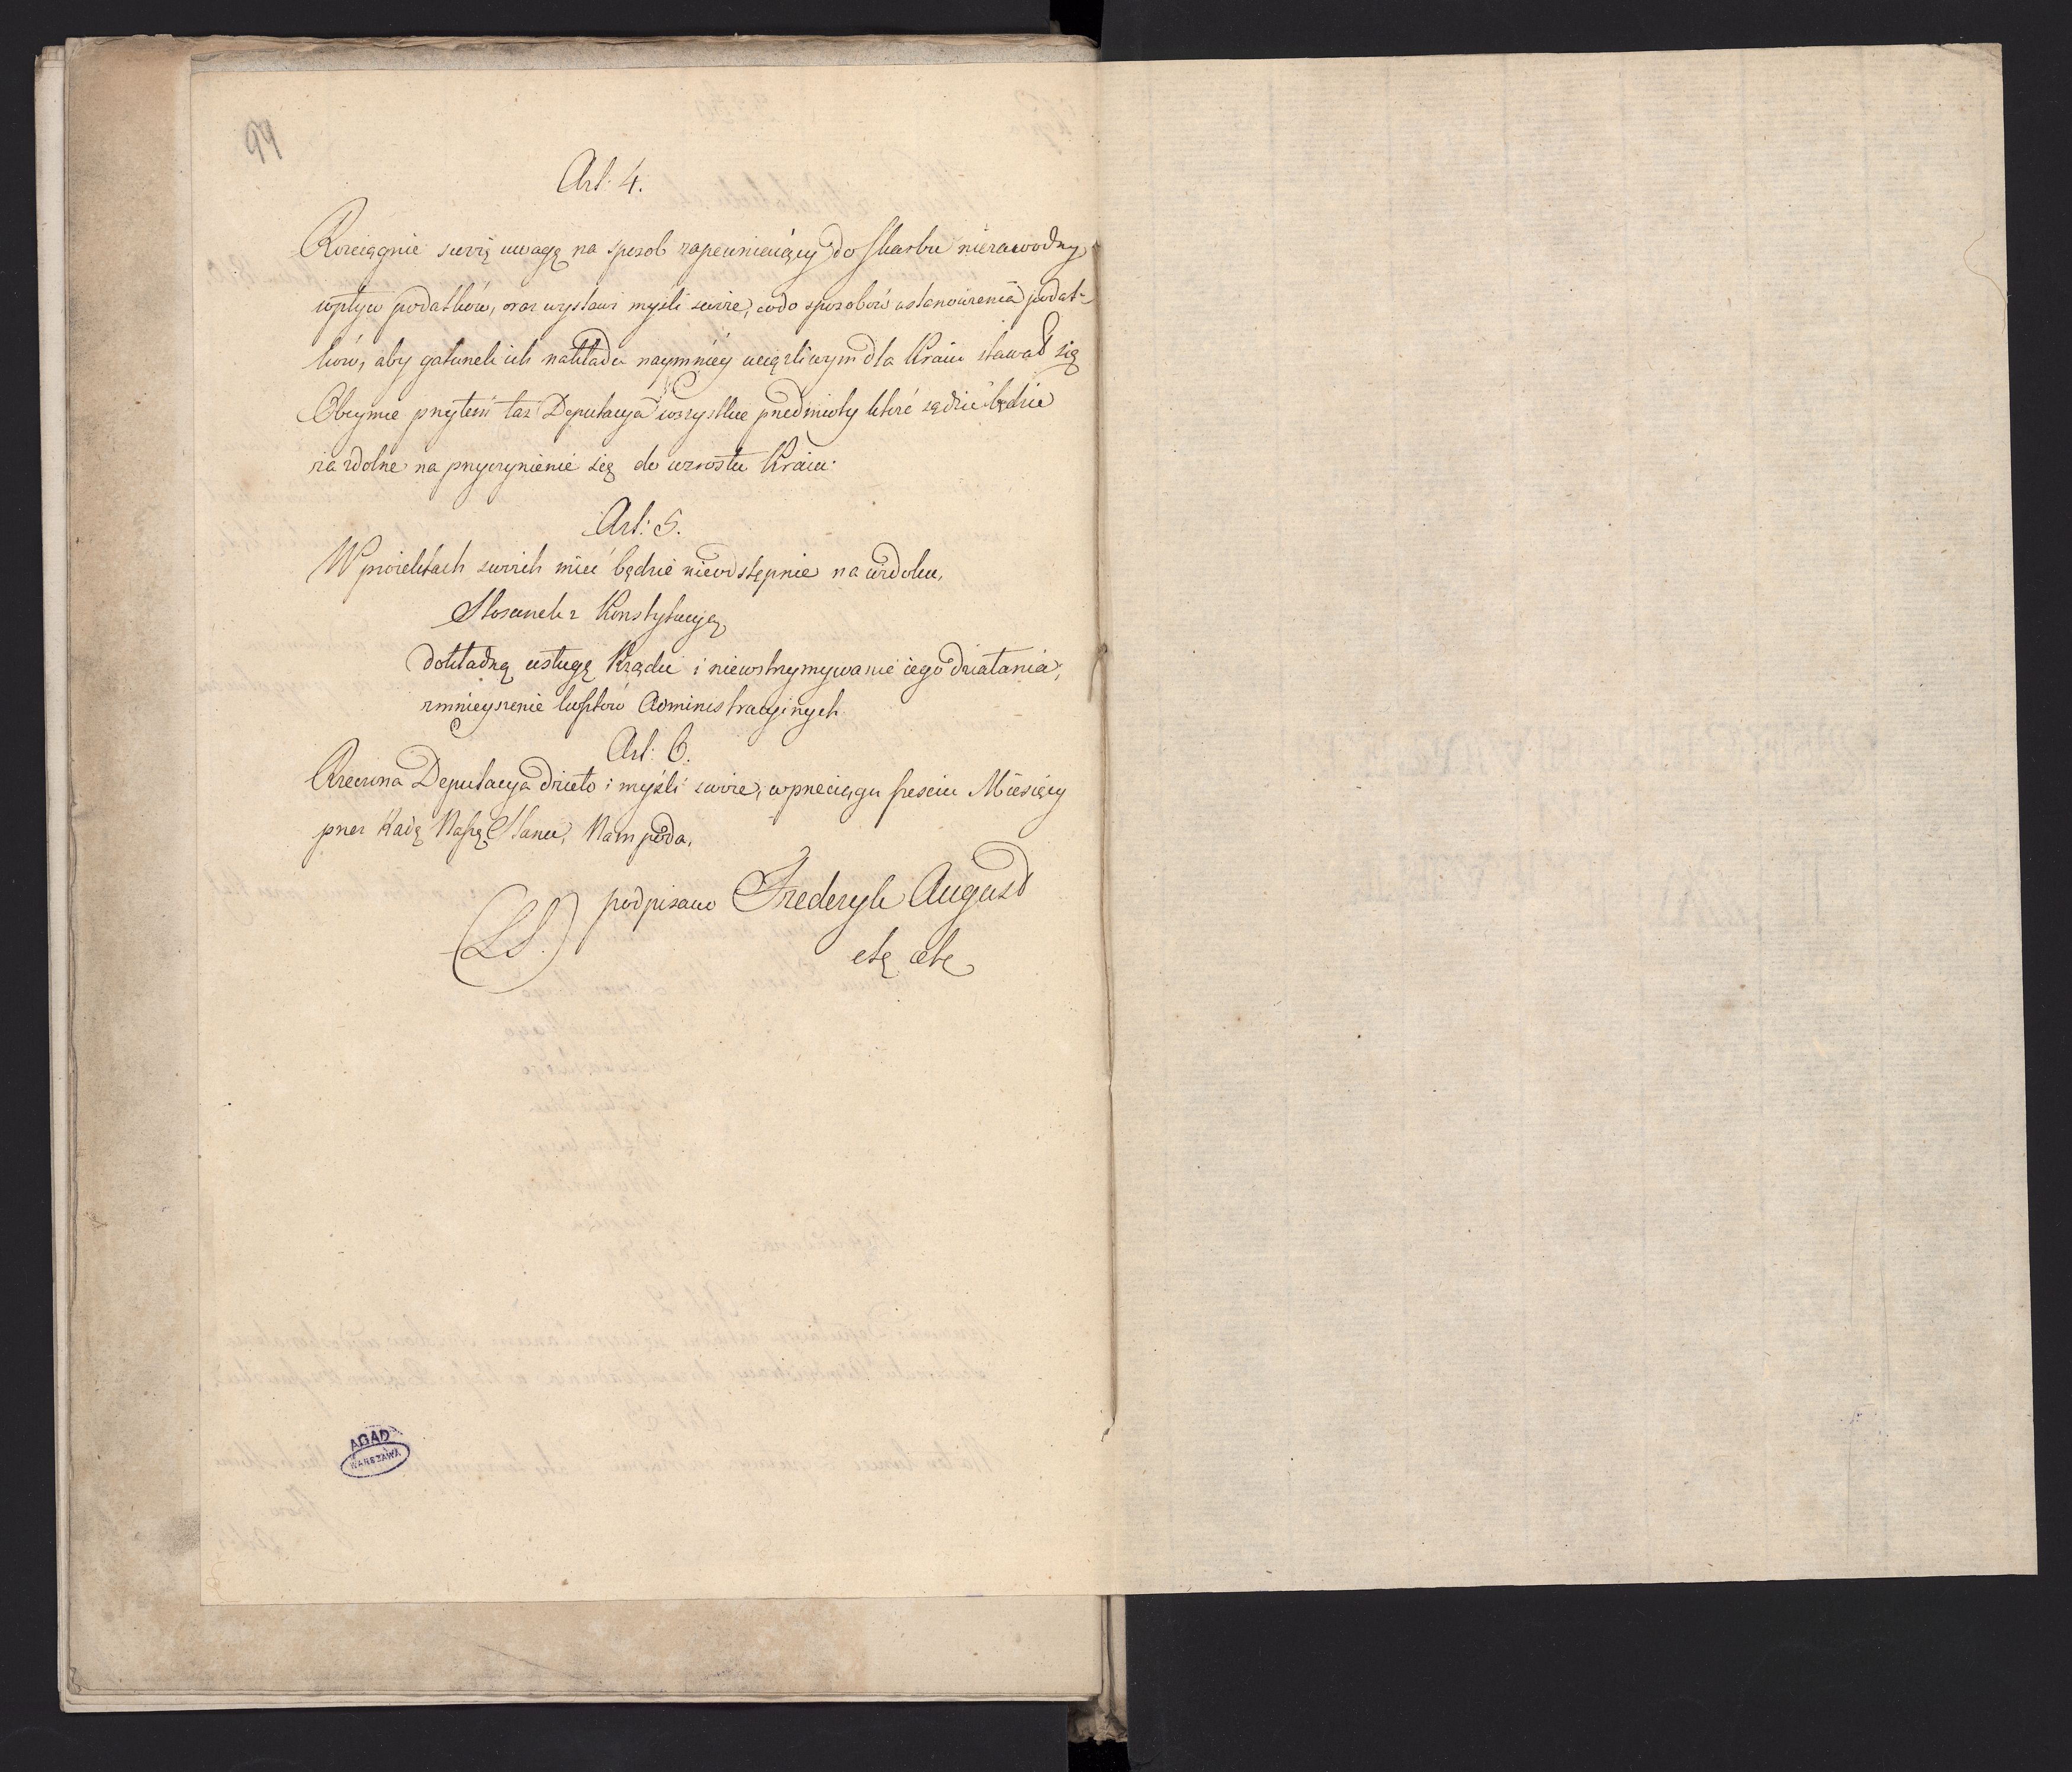 94
Art: 4.
Rozciągnie swoię uwagę na sposob zapewniaiący do Skarbu niezawodny
wpływ podatków, oraz wystawi myśli swoie, codo sposobów ustanowienia podat-
ków, aby gatunek ich nakładu naymniéy uciążliwym dla Kraiu stawał się
Obeymie przytem taż Deputacya wszystkie przedmioty które sądzić będzie
za zdolne na przyczynienie się do wzrostu Kraiu.
Art: 5.
W proiektach swoich mieć będzie nieodstępnie na widoku,
Stosunek z Konstytucyą,
dokładną usługę Rządu i niewstrzymywanie iego działania,
zmnieyszenie kosztów Administracyinych
Art: 6.
Rzeczona Deputacya dzieło i myśli swoie, wprzeciągu sześciu Miesięcy
przez Radę Naszę Stanu, Nam poda,
podpisano Frederyk August
(LS.)
etc etc
AGAD
WARSZAWA